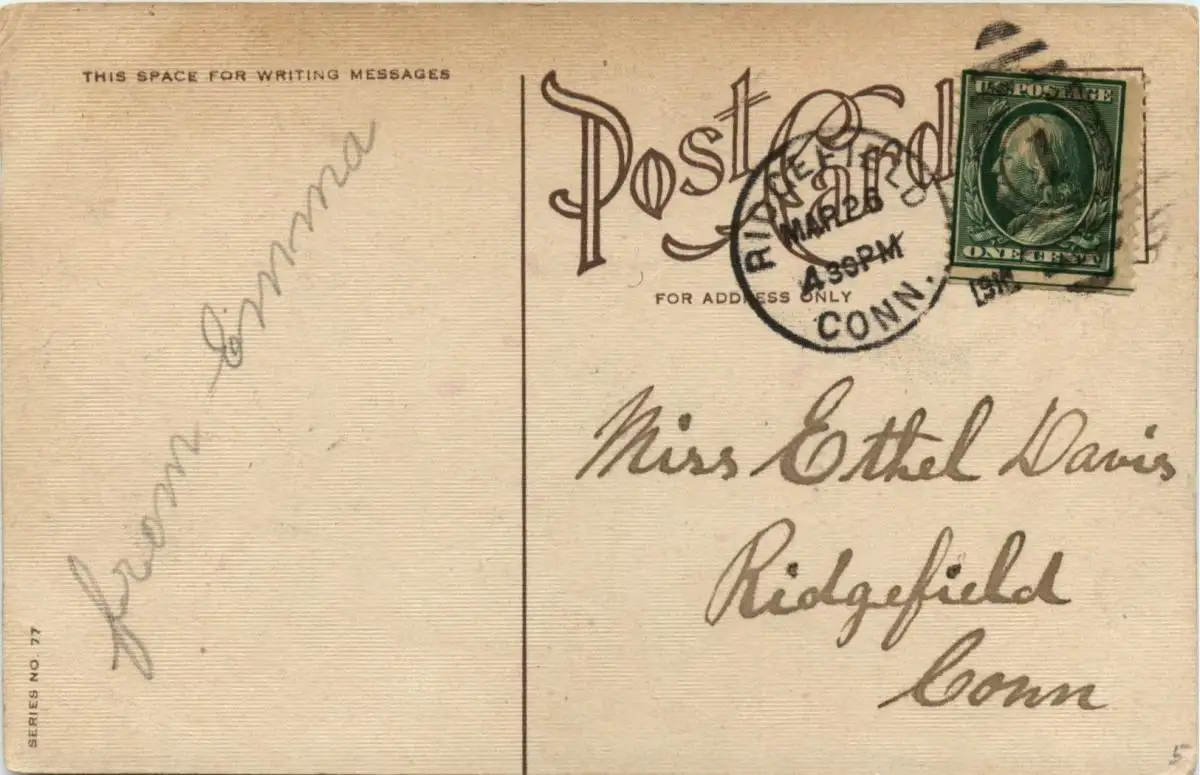 THIS SPACE FOR WRITING MESSAGES
Post Card
U.S. POSTAGE
ONE CENT
RIDGEFIELD
MAR 26
4 30 PM
CONN.
FOR ADDRESS ONLY
from Emma
Miss Ethel Davis
Ridgefield
Conn
SERIES NO. 77
5